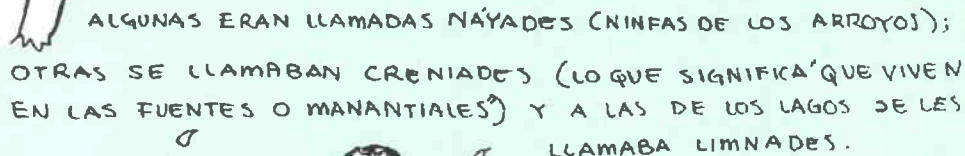 ALGUNAS ERAN LLAMADAS NÁYADES (NINFAS DE LOS ARROYOS);
OTRAS SE LLAMABAN CRENIADES (LO QUE SIGNIFICA "QUE VIVEN
EN LAS FUENTES O MANANTIALES") Y A LAS DE LOS LAGOS SE LES
LLAMABA LIMNADES.